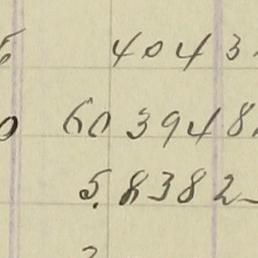 4043
603948
5.8382